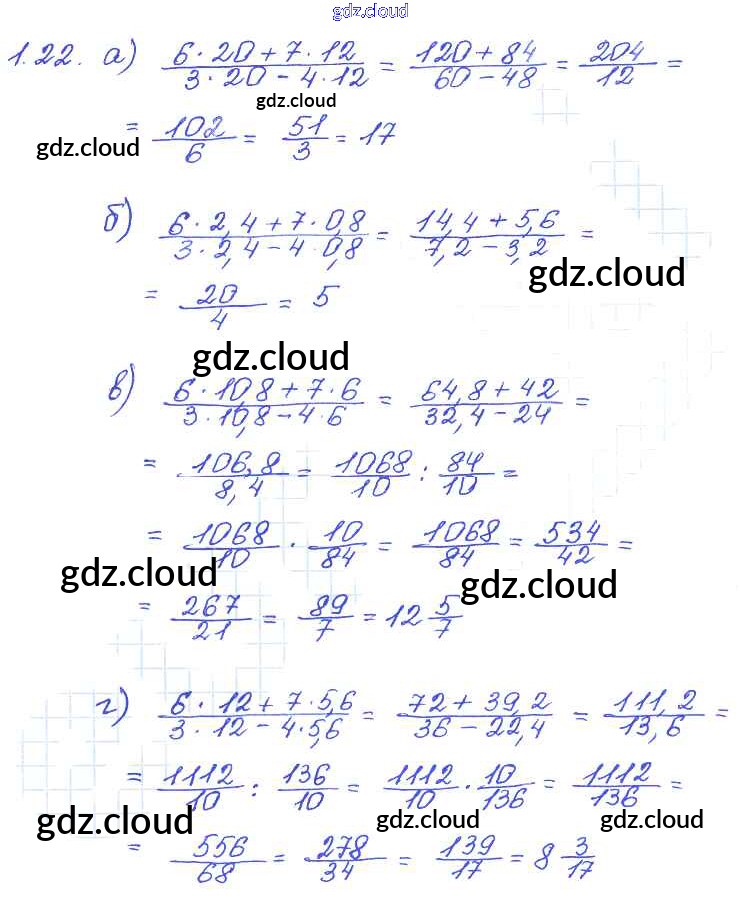 gdz.cloud
1.22. а) (6·20+7·12)/(3·20-4·12) = (120+84)/(60-48) = 204/12 =
gdz.cloud
= 102/6 = 51/3 = 17
gdz.cloud
б) (6·2,4+7·0,8)/(3·2,4-4·0,8) = (14,4+5,6)/(7,2-3,2) =
gdz.cloud
= 20/4 = 5
gdz.cloud
в) (6·10,8+7·6)/(3·10,8-4·6) = (64,8+42)/(32,4-24) =
= 106,8/8,4 = 1068/10 : 84/10 =
= 1068/10 · 10/84 = 1068/84 = 534/42 =
gdz.cloud gdz.cloud
= 267/21 = 89/7 = 12 5/7
г) (6·12+7·5,6)/(3·12-4·5,6) = (72+39,2)/(36-22,4) = 111,2/13,6 =
= 1112/10 : 136/10 = 1112/10 · 10/136 = 1112/136 =
gdz.cloud gdz.cloud gdz.cloud
= 556/68 = 278/34 = 139/17 = 8 3/17